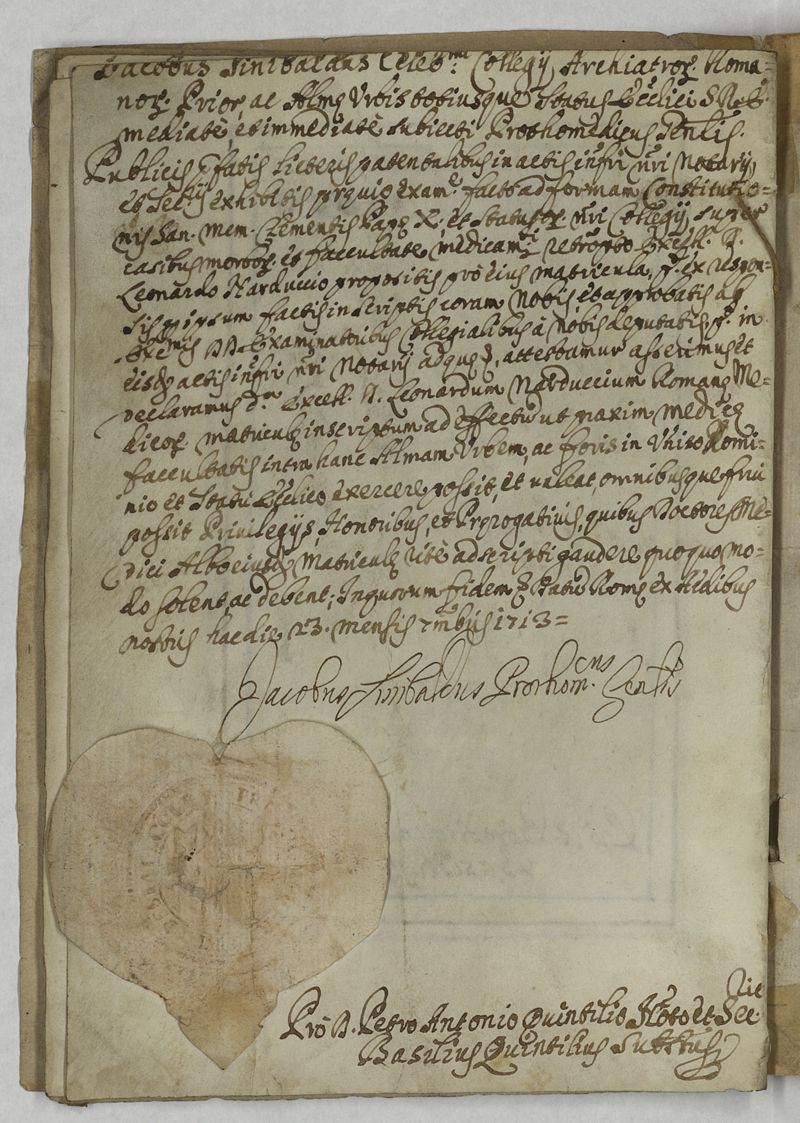 Jacobus Sinibaldus Celeb.mi Collegij Archiatror. Roma=
nor. Prior, ac Almę Urbis totiusque Status Ecclici S.R.E.
mediatè, et immediatè subiecti Prothomedicus Genlis.
Publicis pfatis licteris patentalibus in actis infri nri Notarij,
et Secrij exhibitis prquio exam.e facto ad formam Constitutio=
nis San. Mem. Clementis Papę X., et Statutor. nri Collegij, super
casibus mortor. et facultate medicam.ti retropto Excell. D.
Leonardo Narduccio propositis pro eius matricula, et ex respon=
sis p ipsum factis in scriptis coram Nobis, et approbatis ab
Exc.mis DD. Examinatoribus Collegialibus à nobis deputatis, in
eisd. actis infri nri Notarij ad quę attestamur asserimus et
declaramus d.m Excell. D. Leonardum Narduccium Romanę Me=
dicor. matriculę inscriptum ad effectu ut praxim Medicę
facultatis intra hanc Almam Urbem, ac foris in Uniso Domi=
nio et Statu Ecclico exercere possit, et valeat, omnibusque frui
possit Privilegijs, Honoribus, et Prerogativis, quibus Doctores Me=
dici Albo eiusd. Matriculę ritè adscripti gaudere quoquo mo=
do solent, ac debent; In quorum fidem Datu Romę ex Aedibus
nostris hac die 23. mensis 7mbris 1713=
Jacobus Sinibaldus Prothom.cus Genlis
Pro D. Petro Antonio Quintilio Noto et Sec.rio
Basilius Quintilius Substus